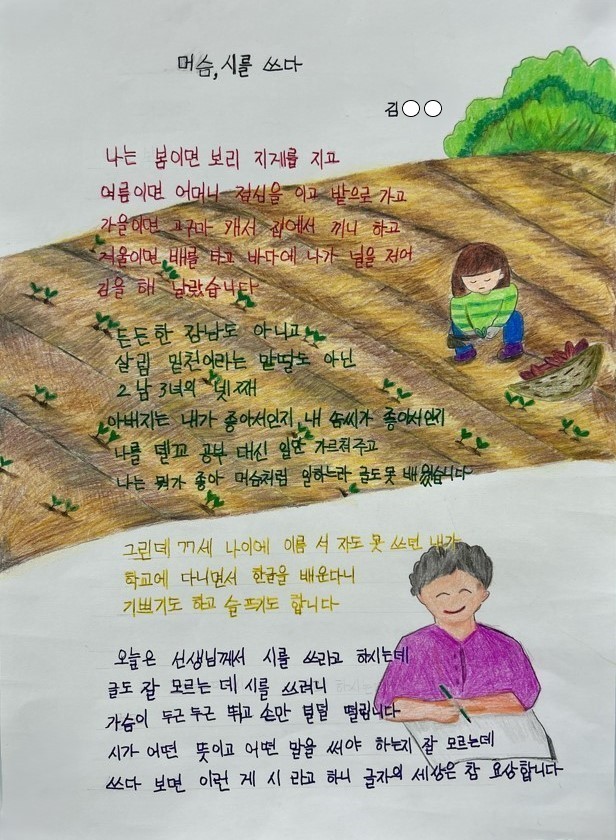 머슴, 시를 쓰다
김○○
나는 봄이면 보리 지게를 지고
여름이면 어머니 점심을 이고 밭으로 가고
가을이면 고구마 캐서 집에서 끼니 하고
겨울이면 배를 타고 바다에 나가 널을 저어
김을 해 날랐습니다
든든한 장남도 아니고
살림 밑천이라는 맏딸도 아닌
2남 3녀의 넷째
아버지는 내가 좋아서인지 내 솜씨가 좋아서인지
나를 델꼬 공부 대신 일만 가르쳐주고
나는 뭐가 좋아 머슴처럼 일하느라 글도 못 배웠습니다
그런데 77세 나이에 이름 석 자도 못 쓰던 내가
학교에 다니면서 한글을 배운다니
기쁘기도 하고 슬프기도 합니다
오늘은 선생님께서 시를 쓰라고 하시는데
글도 잘 모르는 데 시를 쓰려니
가슴이 두근두근 뛰고 손만 덜덜 떨립니다
시가 어떤 뜻이고 어떤 말을 써야 하는지 잘 모르는데
쓰다 보면 이런 게 시 라고 하니 글자의 세상은 참 요상합니다